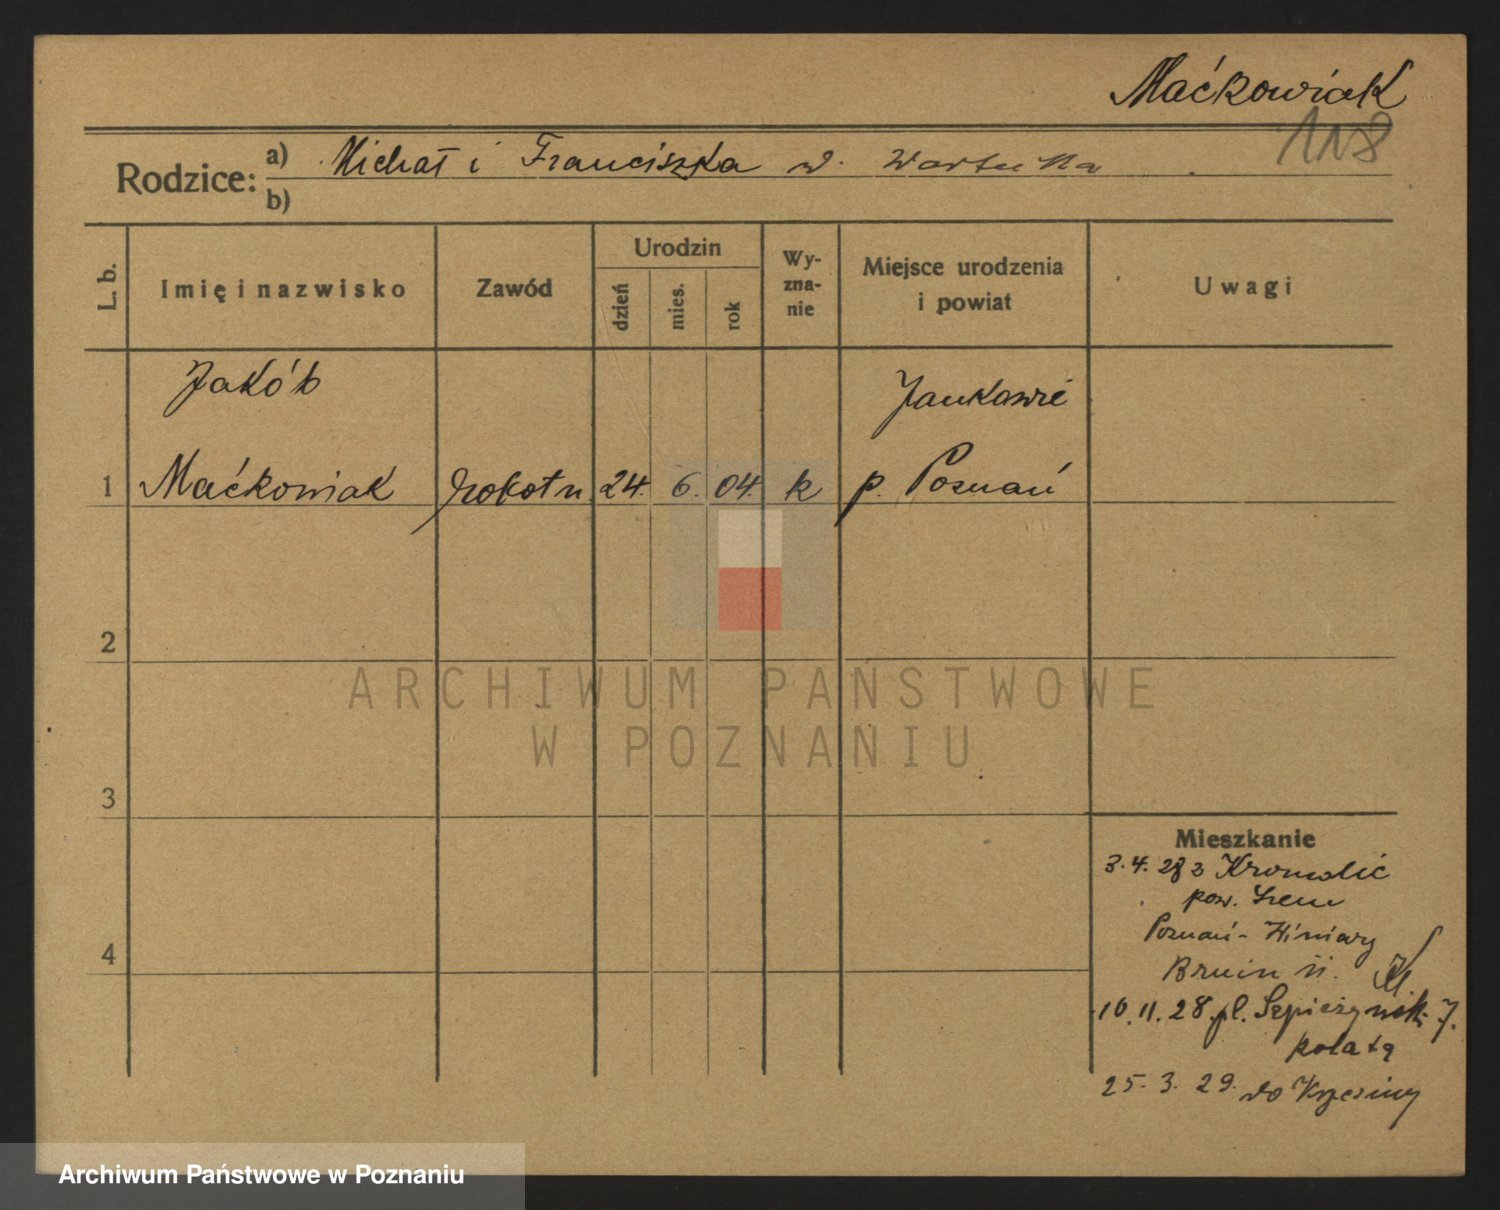 Maćkowiak
118
Rodzice: a) Michał i Franciszka d.
b)
L. b.
Imię i nazwisko
Zawód
Urodzin
dzień
mies.
rok
Wy-
zna-
nie
Miejsce urodzenia
i powiat
Uwagi
Jakób
Jankowie
1 Maćkowiak robotn. 24. 6. 04. k p. Poznań
2
ARCHIWUM PAŃSTWOWE
W POZNANIU
3
Mieszkanie
3.4.28 z Kromolic
pow. Śrem
Poznań - Winiary
4
10.11.28. pl. 7.
25. 3. 29. do Krzesiny
Archiwum Państwowe w Poznaniu